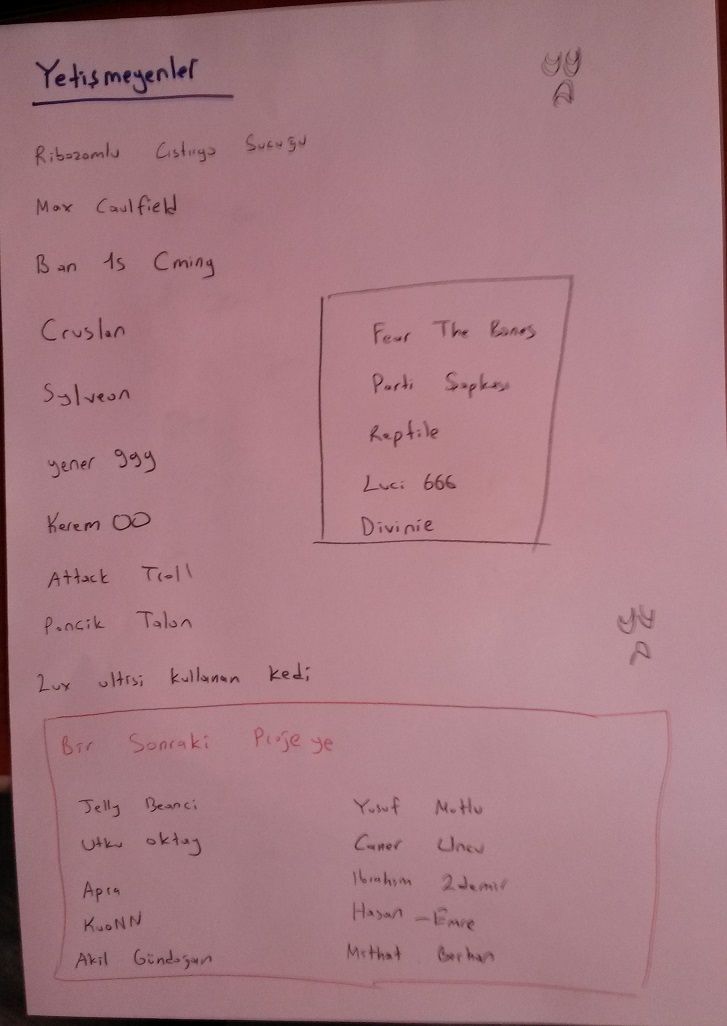 Yetişmeyenler
Ribozomlu Cıstırgo Sucuğu
Max Caulfield
Ban 1s Cming
Cruslan
Sylveon
yener 999
Kerem OO
Attack Troll
Poncik Talon
Lux ultisi kullanan kedi
Fear The Bones
Parti Şapkası
Reptile
Luci 666
Divinie
Bir Sonraki Projeye
Jelly Beanci
Utku oktay
Apra
KuoNN
Akil Gündoğan
Yusuf Mutlu
Caner
Ibrahim 2demir
Hasan - Emre
Mithat Berhan